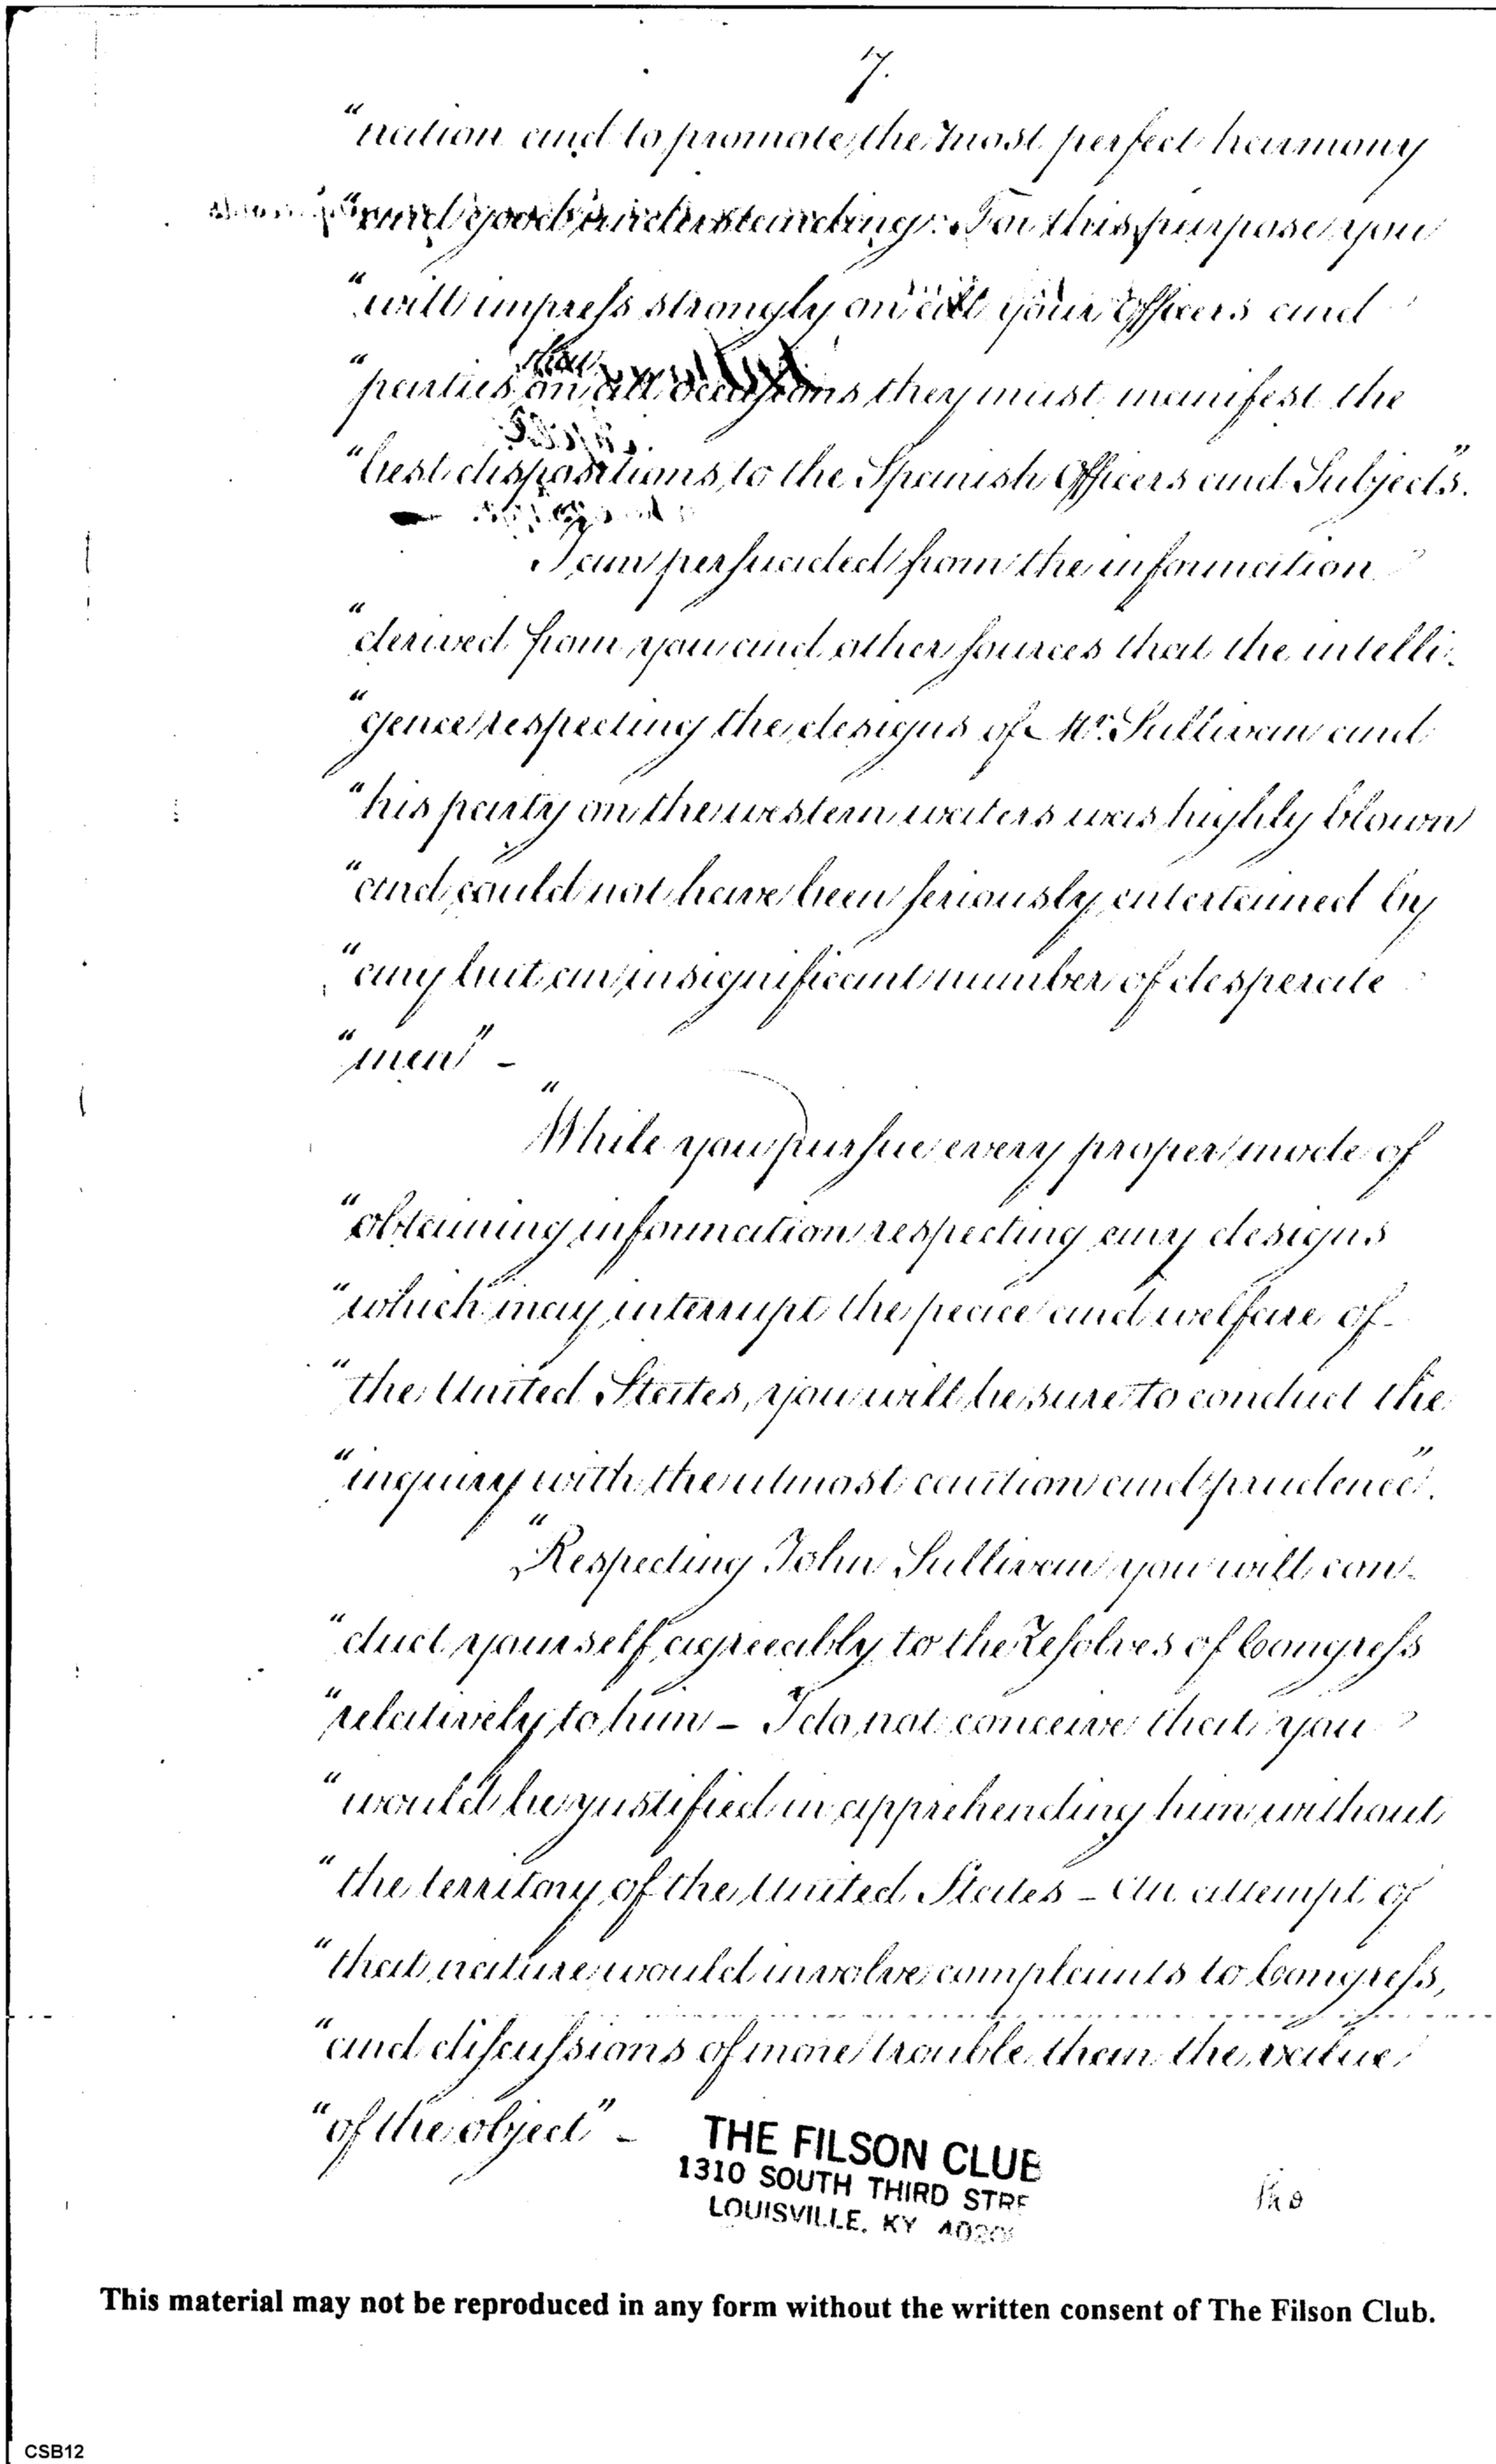 7.
"nation and to promote the most perfect harmony
"and good understanding. For this purpose you
"will impress strongly on all your Officers and
"parties on all occasions they must manifest the
"best dispositions to the Spanish Officers and Subjects".
I am persuaded from the information
"derived from you and other sources that the intelli-
"gence respecting the designs of Mr. Sullivan and
"his party on the western waters was highly blown
"and could not have been seriously entertained by
"any but an insignificant number of desperate
"men" -
"While you pursue every proper mode of
"obtaining information respecting any designs
"which may interrupt the peace and welfare of
"the United States, you will be sure to conduct the
"inquiry with the utmost caution and prudence".
"Respecting John Sullivan you will con-
"duct yourself agreeably to the Resolves of Congress
"relatively to him - I do not conceive that you
"would be justified in apprehending him without
"the territory of the United States - An attempt of
"that nature would involve complaints to Congress,
"and discussions of more trouble than the value
"of the object" -
THE FILSON CLUB
1310 SOUTH THIRD STRE
LOUISVILLE, KY 4020
This material may not be reproduced in any form without the written consent of The Filson Club.
CSB12